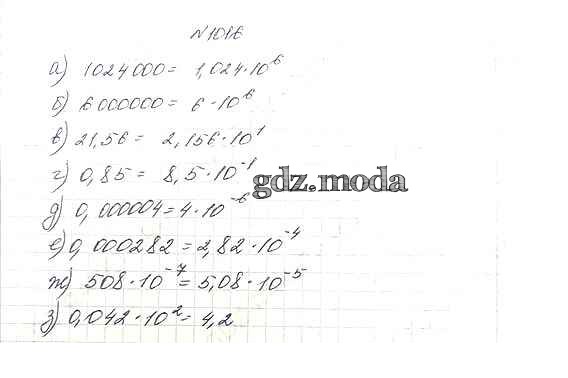 N1016
а) 1024000 = 1,024·10⁶
б) 6 000000 = 6·10⁶
в) 21,56 = 2,156·10¹
г) 0,85 = 8,5·10⁻¹
gdz.moda
д) 0,000004 = 4·10⁻⁶
е) 0,000282 = 2,82·10⁻⁴
ж) 508·10⁻⁷ = 5,08·10⁻⁵
з) 0,042·10² = 4,2